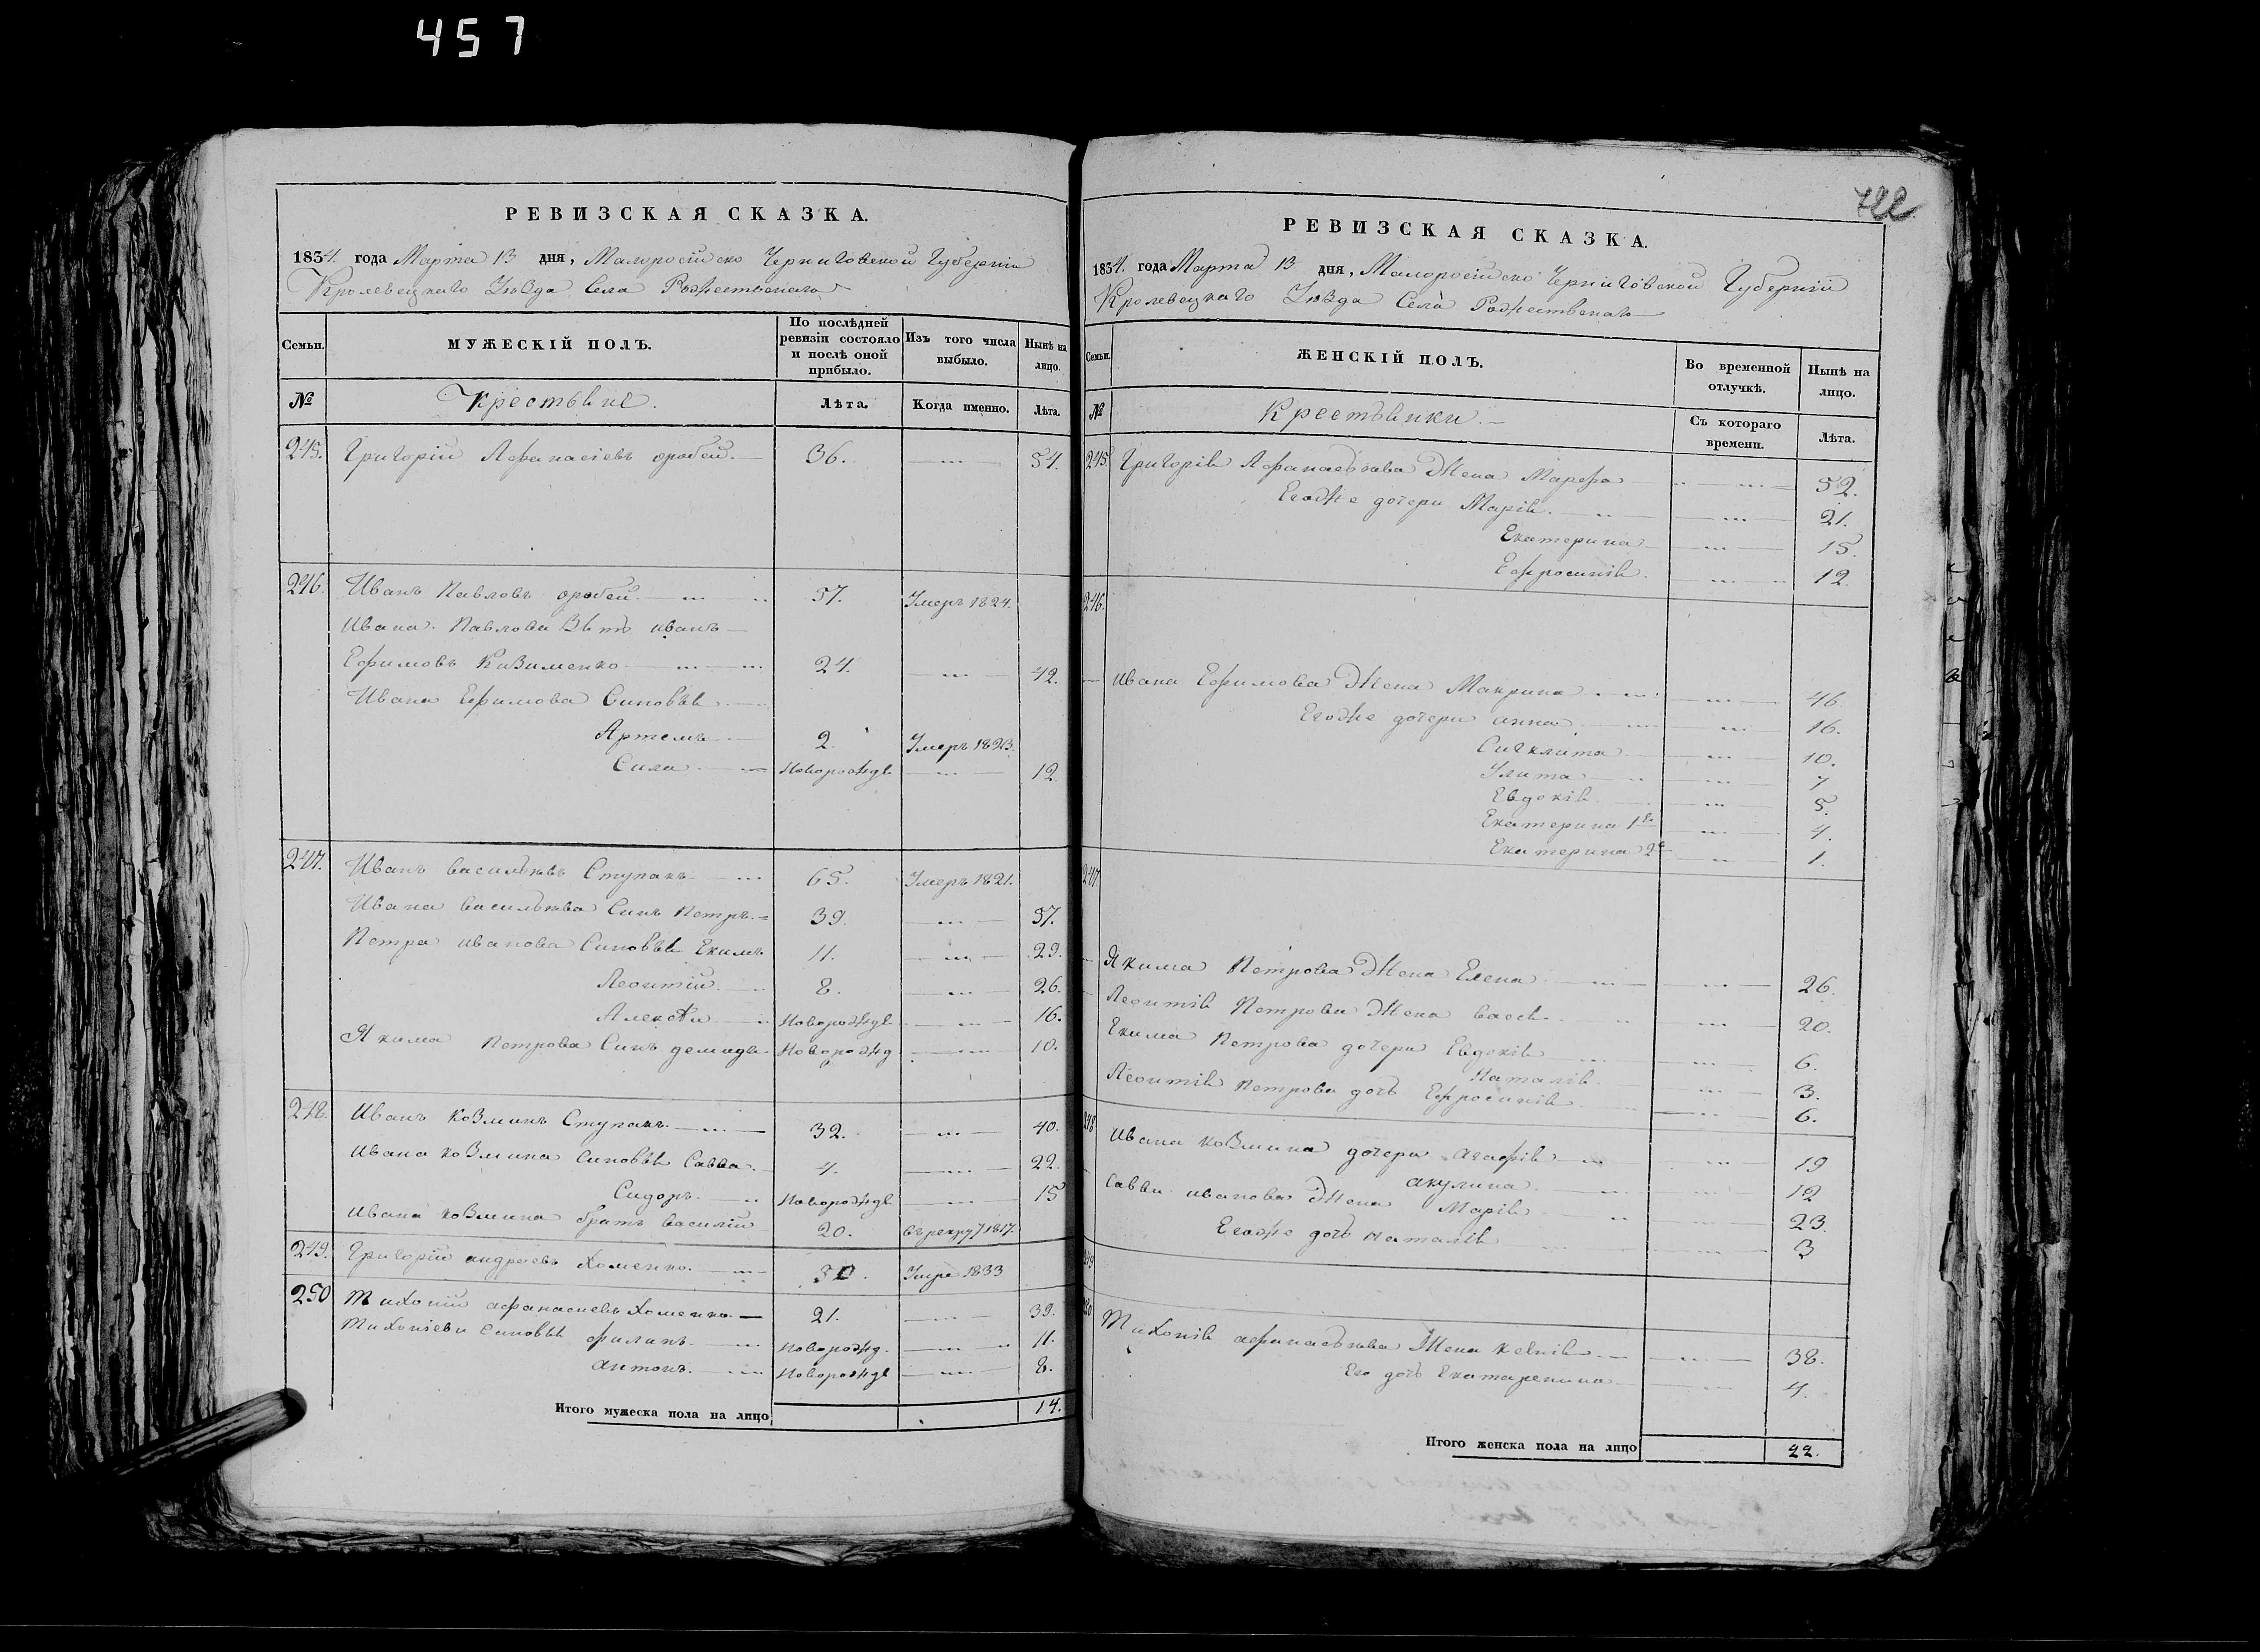 457
722
РЕВИЗСКАЯ СКАЗКА.
1834. года Марта 13 дня, Малоросійско Черниговской Губерніи
Кролевецкаго Уѣзда Села Рождественскаго
Семьи.
МУЖЕСКІЙ ПОЛЪ.
По послѣдней ревизіи состояло и послѣ оной прибыло.
Изъ того числа выбыло.
Нынѣ на лицо.
№ Крестьяне. Лѣта. Когда именно. Лѣта.
245. Григорій Афанасіевъ оробей. 36. 54.
246. Иванъ Павловъ оробей 57. Умеръ 1824.
Ивана Павлова Зять иванъ
Ефимовъ 24. 42.
Ивана Ефимова Синовья
Артемъ 2. Умеръ 1823.
Сила Новорожде 12
247. Иванъ васильевъ Ступакъ 65. Умеръ 1821.
Ивана васильева Синъ Петръ 39. 57.
Петра иванова Синовья Екимъ 11. 29.
Леонтій 8. 26.
Алексѣи Новорожде 16.
Якима Петрова Синъ демидъ Новорожд 10.
248. Иванъ Козминъ Ступакъ 32. 40.
Ивана Козмина Синовья Савва 4. 22.
Сидоръ Новорожде 15
Ивана Козмина братъ василій 20. въ рекру 1817.
249. Григорій андреевъ Хоменко. 50. Умре 1833
250 Тихоній афанасиевъ Хоменко 21. 39.
Тихоніеви синовья филипъ Новорожд. 11.
антонъ Новорожде 8.
Итого мужеска пола на лицо 14.
РЕВИЗСКАЯ СКАЗКА.
1834. года Марта 13 дня, Малоросійско Черниговской Губерніи
Кролевецкаго Уѣзда Села Рождественскаго
Семьи.
ЖЕНСКІЙ ПОЛЪ.
Во временной отлучкѣ.
Нынѣ на лицо.
№ Крестьянки. Съ котораго времени. Лѣта.
245. Григорія Афанасьева Жена Марфа 52.
Егожъ дочери Марія 21.
Екатерина 15.
Ефросинія 12
246.
Ивана Ефимова Жена Макрина 46
Егоже дочери анна 16.
Сигклита 10.
Улита 7
Евдокія 5.
Екатерина 1я 4.
Екатерина 2я 1.
247
Якима Петрова Жена Елена 26.
Леонтія Петрова Жена васса 20.
Екима Петрова дочери Евдокія 6.
Наталія 3.
Леонтія Петрова дочь Ефросинія 6.
248 Ивана Козмина дочери агафія 19
акулина 12
Савви иванова Жена Марія 23
Егоже дочь Наталія 3
249
250 Тихонія афанасьева Жена Ксенія 38.
Его дочь Екатеренина 4.
Итого женска пола на лицо 22.